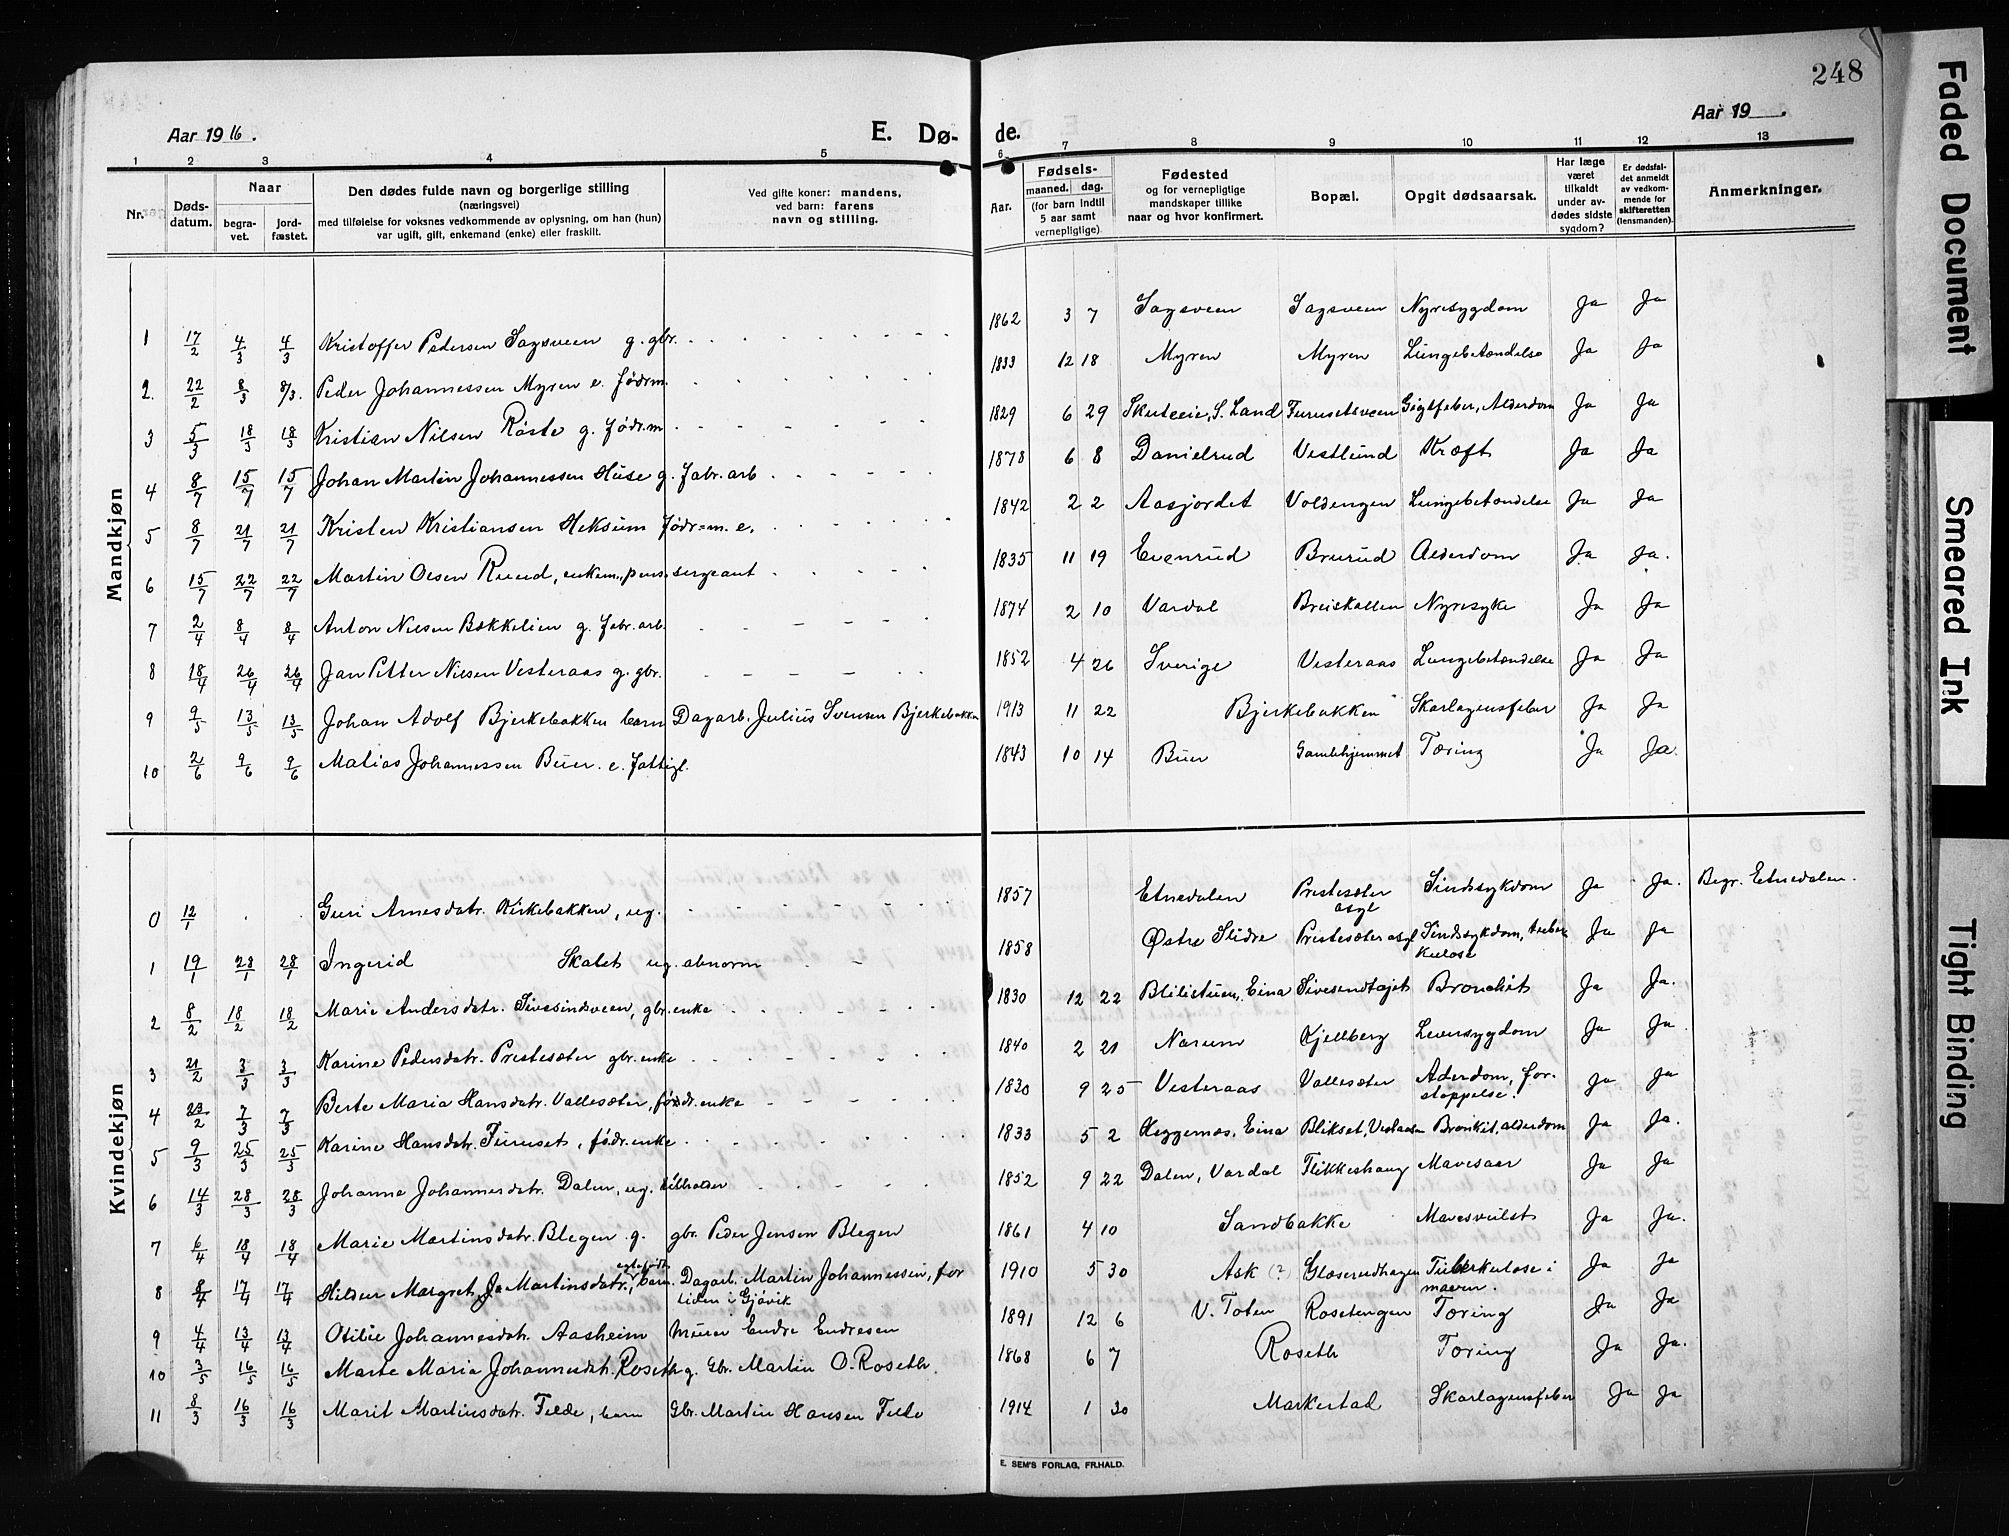 248
Aar 1916.
E. Dø-
de.
Aar 19 .
1 2 3 4 5 6 7 8 9 10 11 12 13
Nr.
Døds-
datum.
Naar
begra-
vet.
jord-
fæstet.
Den dødes fulde navn og borgerlige stilling
(næringsvei)
med tilføielse for voksnes vedkommende av oplysning, om han (hun)
var ugift, gift, enkemand (enke) eller fraskilt.
Ved gifte koner: mandens,
ved barn: farens
navn og stilling.
Aar.
Fødsels-
maaned. dag.
(for barn indtil
5 aar samt
vernepligtige).
Fødested
og for vernepligtige
mandskaper tillike
naar og hvor konfirmert.
Bopæl.
Opgit dødsaarsak.
Har læge
været
tilkaldt
under av-
dødes sidste
sygdom?
Er dødsfal-
det anmeldt
av vedkom-
mende for
skifteretten
(lensmanden).
Anmerkninger.
Mandkjøn
1 17/2 4/3 4/3 Kristoffer Pedersen Sagsveen g. gbr. 1862 3 7 Sagsveen Sagsveen Nyresygdom Ja Ja
2. 22/2 8/3 8/3. Peder Johannessen Myren e. födrm. 1833 12 18 Myren Myren Lungebetændelse Ja Ja
3 5/3 18/3 18/3 Kristian Nilsen Röste g. födr.m 1829 6 29 Skuteeie, S. Land Furusetsveen Gigtfeber, Alderdom Ja Ja
4 8/7 15/7 15/7 Johan Martin Johannessen Huse g. fabr. arb 1878 6 8 Danielrud Vestlund Kræft Ja Ja
5 8/7 21/7 21/7 Kristen Kristiansen Heksum födr=m. e. 1842 2 2 Aasjordet Voldengen Lungebetændelse Ja Ja
6 15/7 22/7 22/7 Martin Olsen Ruud, enkem., pens. sergeant 1835 11 19 Evenrud Brurud Alderdom Ja Ja.
7 2/4 8/4 8/4 Anton Nilsen Bakkelien g. fabr. arb. 1874 2 10 Vardal Breiskallen Nyresyke Ja Ja
8 18/4 26/4 26/4 Jan Petter Nilsen Vesteraas g. gbr. 1852 4 26 Sverige Vesteraas Lungebetændelse Ja Ja
9 9/5 13/5 13/5 Johan Adolf Bjerkebakken barn Dagarb. Julius Svensen Bjerkebakken 1913 11 22 Bjerkebakken Skarlagensfeber Ja Ja
10 2/6 9/6 9/6 Matias Johannessen Buer. e. fattigl. 1843 10 14 Buer Gamlehjemmet Tæring Ja Ja.
Kvindekjøn
0 12/1 Guri Arnesdatr. Kirkebakken, ug. 1857 Etnedalen Prestesæter asyl Sindssykdom Ja Ja. Begr. Etnedalen.
1 19/1 28/1 28/1 Ingerid Skalet ug. abnorm 1858 Østre Slidre Prestesæter asyl Sindssykdom, tuber-
kulose Ja Ja
2 8/2 18/2 18/2 Marie Andersdatr. Sivesindsveen, gbr. enke 1830 12 22 Blilistuen, Eina Sivesendtajet Bronchit Ja Ja.
3 21/2 3/3 3/3 Karine Pedersdatr. Prestesæter gbr. enke 1840 2 21 Narum Kjellberg Leversygdom Ja Ja.
4 22/2 7/3 7/3 Berte Maria Hansdatr. Vallesæter, födr. enke 1830 9 25 Vesteraas Vallesæter Aderdom, for-
stoppelse. Ja Ja
5 9/3 25/3 25/3 Karine Hansdatr. Furuset, födr. enke 1833 5 2 Heggernæs, Eina Blikset, Vestaasen Bronkit, alderdom Ja Ja.
6 14/3 28/3 28/3 Johanna Johannesdatr. Dalen, ug. tilholder 1852 9 22 Dalen, Vardal Flikkeshaug Mavesaar Ja Ja
7 6/4 18/4 18/4 Marie Martinsdatr. Blegen g. gbr. Peder Jensen Blegen 1861 4 10 Sandbakke Mavesvulst Ja Ja.
8 8/4 17/4 17/4 Hildur Margret Martinsdatr., egtefödt barn. Dagarb. Martin Johannessen, for
tiden i Gjövik 1910 5 30 Ask (?) Glæserudhagen Tuberkulose i
maven. Ja Ja
9 4/4 13/4 13/4 Otilie Johannesdatr. Aasheim Murer Endre Endresen 1891 12 6 V. Toten Rosetengen Tæring Ja Ja
10 3/5 16/5 16/5 Marte Maria Johannesdatr. Roseth g. Gbr. Martin O. Roseth. 1868 6 7 Roseth Tæring Ja Ja.
11 8/3 16/3 16/3 Marit Martinsdatr. Felde, barn Gbr. Martin Hansen Felde 1914 1 30 Markestad Skarlagensfeber Ja Ja
E. SEM'S FORLAG, FR.HALD.
Faded Document
Smeared Ink
Tight Binding